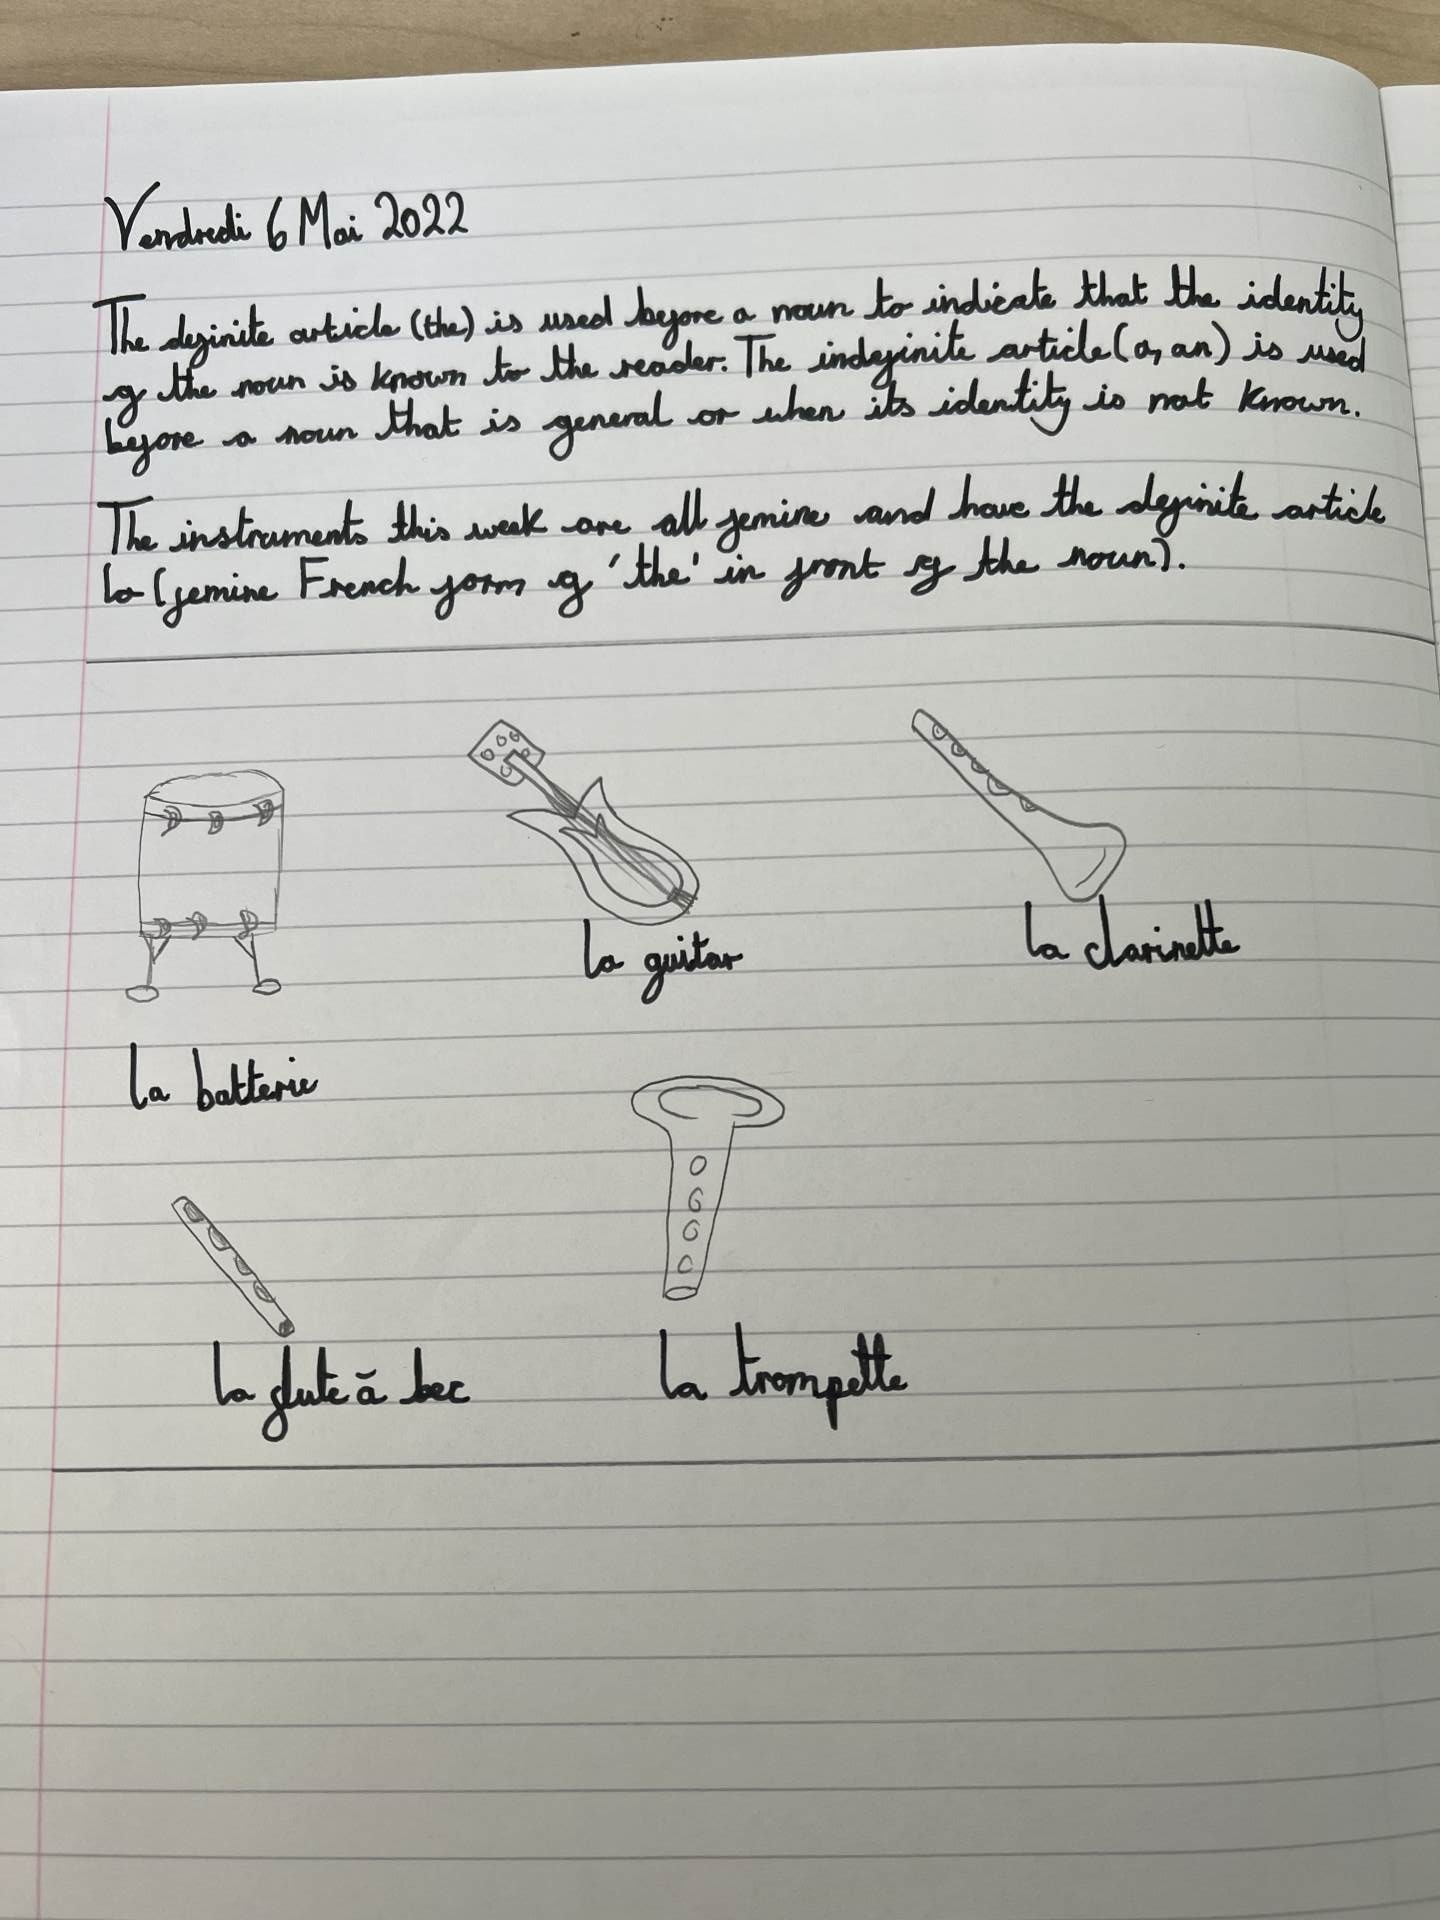 Vendredi 6 Mai 2022
The definite article (the) is used before a noun to indicate that the identity
of the noun is known to the reader. The indefinite article (a, an) is used
before a noun that is general or when its identity is not known.
The instruments this week are all femine and have the definite article
la (femine French form of 'the' in front of the noun).
la guitar
la clarinette
la batterie
la flute ā bec
la trompette